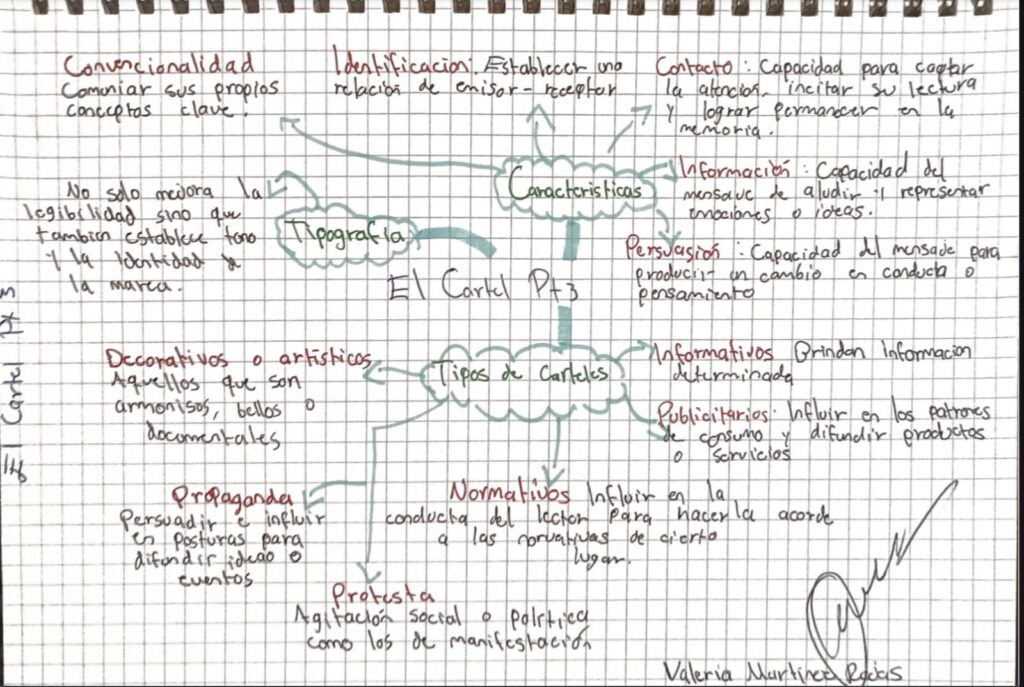 Convencionalidad
Comuniar sus propios
conceptos clave.
Identificacion: Establecer una
relación de emisor-receptor
Contacto: Capacidad para captar
la atención, incitar su lectura
y lograr permanecer en la
memoria.
Caracteristicas
Información: Capacidad del
mensaje de aludir y representar
emociones o ideas.
Persuasión: Capacidad del mensade para
producir un cambio en conducta o
pensamiento
No solo mejora la
legibilidad sino que
tambien establece tono
y la identidad de
la marca.
Tipografía
El Cartel Pt3
El Cartel Pt 3
Tipos de Carteles
Decorativos o artisticos
Aquellos que son
armonisos, bellos o
documentales
Informativos Brindan Informacion
determinada
Publicitarios: Influir en los patrones
de consumo y difundir productos
o servicios
Propaganda
Persuadir e influir
en posturas para
difundir ideao o
eventos
Normativos Influir en la
conducta del lector para hacerla acorde
a las norvativas de cierto
lugar.
Protesta
Agitación social o política
como los de manifestación
Valeria Martinez Rojas